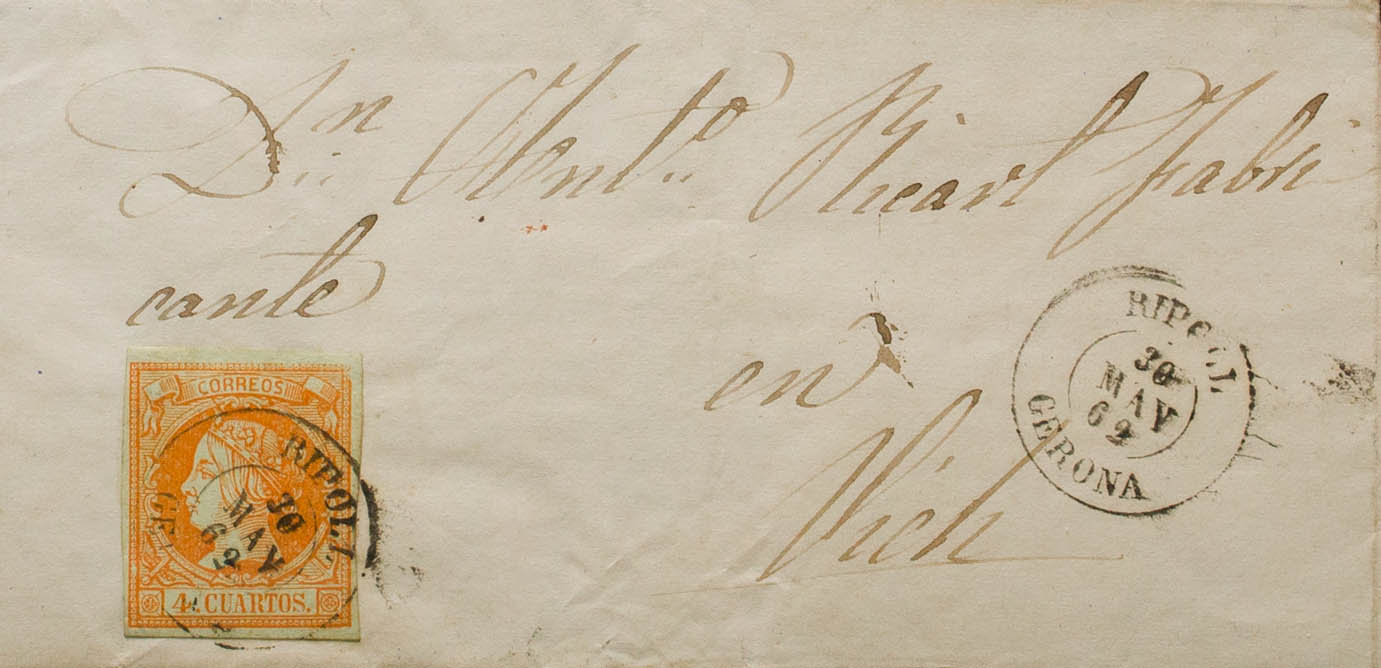 Dn Anto Ricart Fabri
cante
en
Vich
RIPOLL
30
MAY
62
GERONA
CORREOS
RIPOLL
30
MAY
62
GE
4 CUARTOS.